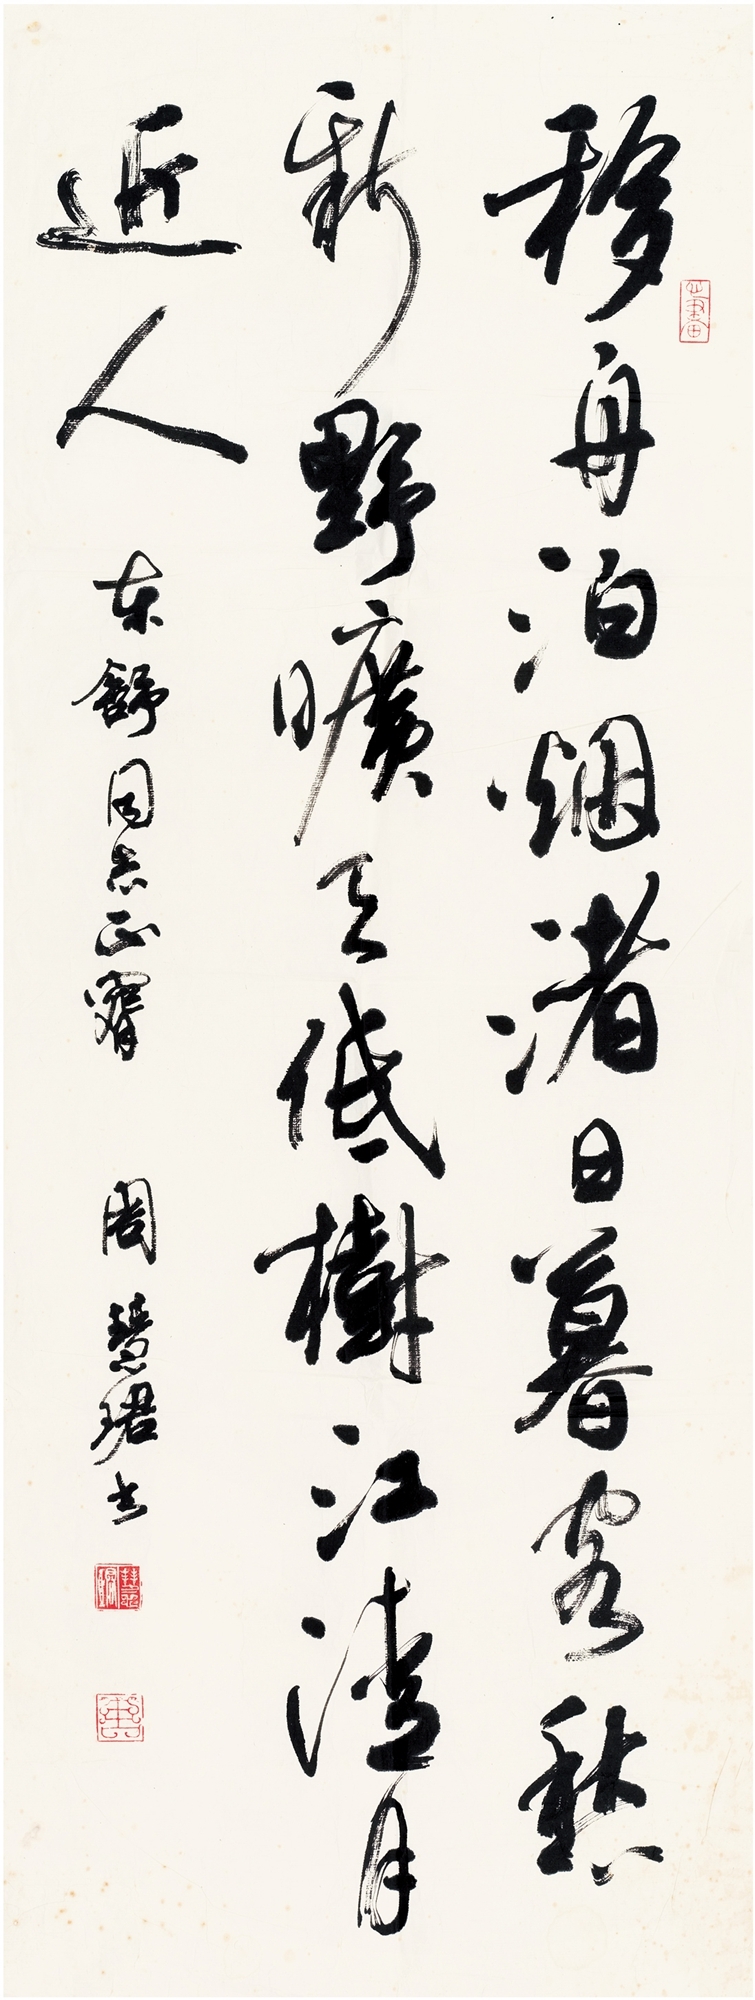 移舟泊烟渚日暮客愁
新野曠天低樹江清月
近人
东舒同志正腕
周慧珺书